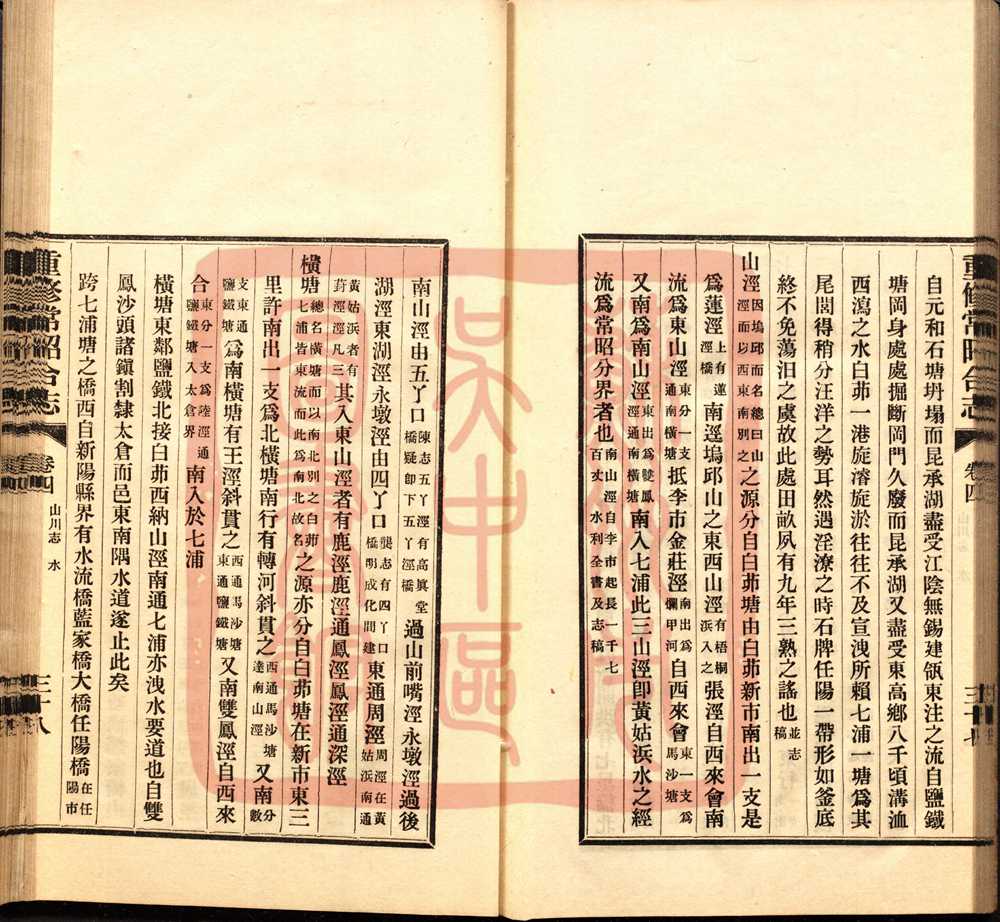 重修常昭合志
卷四
三十七
自元和石塘坍塌而昆承湖盡受江陰無錫建瓴東注之流自鹽鐵
塘岡身處處掘斷岡門久廢而昆承湖又盡受東高鄉八千頃溝洫
西瀉之水白茆一港旋濬旋淤往往不及宣洩所賴七浦一塘爲其
尾閭得稍分汪洋之勢耳然遇淫潦之時石牌任陽一帶形如釜底
終不免蕩汨之虞故此處田畝夙有九年三熟之謠也並志稿
山涇因塢邱而名總曰山涇而以西東南別之之源分自白茆塘由白茆新市南出一支是
爲蓮涇上有蓮涇橋南逕塢邱山之東西山涇有梧桐浜入之張涇自西來會南
流爲東山涇東分一支通南橫塘抵李市金莊涇南出爲爛甲河自西來會東一支爲馬沙塘
又南爲南山涇東出爲雙鳳涇通南橫塘南入七浦此三山涇卽黃姑浜水之經
流爲常昭分界者也南山涇自李市起長一千七百丈水利全書及志稿
南山涇由五丫口陳志五丫涇有高眞堂橋疑卽下五丫涇橋過山前嘴涇永墩涇過後
湖涇東湖涇永墩涇由四丫口龔志有四丫口橋明成化間建東通周涇周涇在黃姑浜南通
黃姑浜者有葑涇涇凡三其入東山涇者有鹿涇鹿涇通鳳涇鳳涇通深涇
橫塘總名橫塘而以南北別之白茆七浦皆東流而此爲南北故名之源亦分自白茆塘在新市東三
里許南出一支爲北橫塘南行有轉河斜貫之西通馬沙塘達南山涇又南分數
支東通鹽鐵塘爲南橫塘有王涇斜貫之西通馬沙塘東通鹽鐵塘又南雙鳳涇自西來
合東分一支爲陸涇通鹽鐵塘入太倉界南入於七浦
橫塘東鄰鹽鐵北接白茆西納山涇南通七浦亦洩水要道也自雙
鳳沙頭諸鎭割隸太倉而邑東南隅水道遂止此矣
跨七浦塘之橋西自新陽縣界有水流橋藍家橋大橋任陽橋在任陽市
重修常昭合志
卷四
山川志 水
三十八